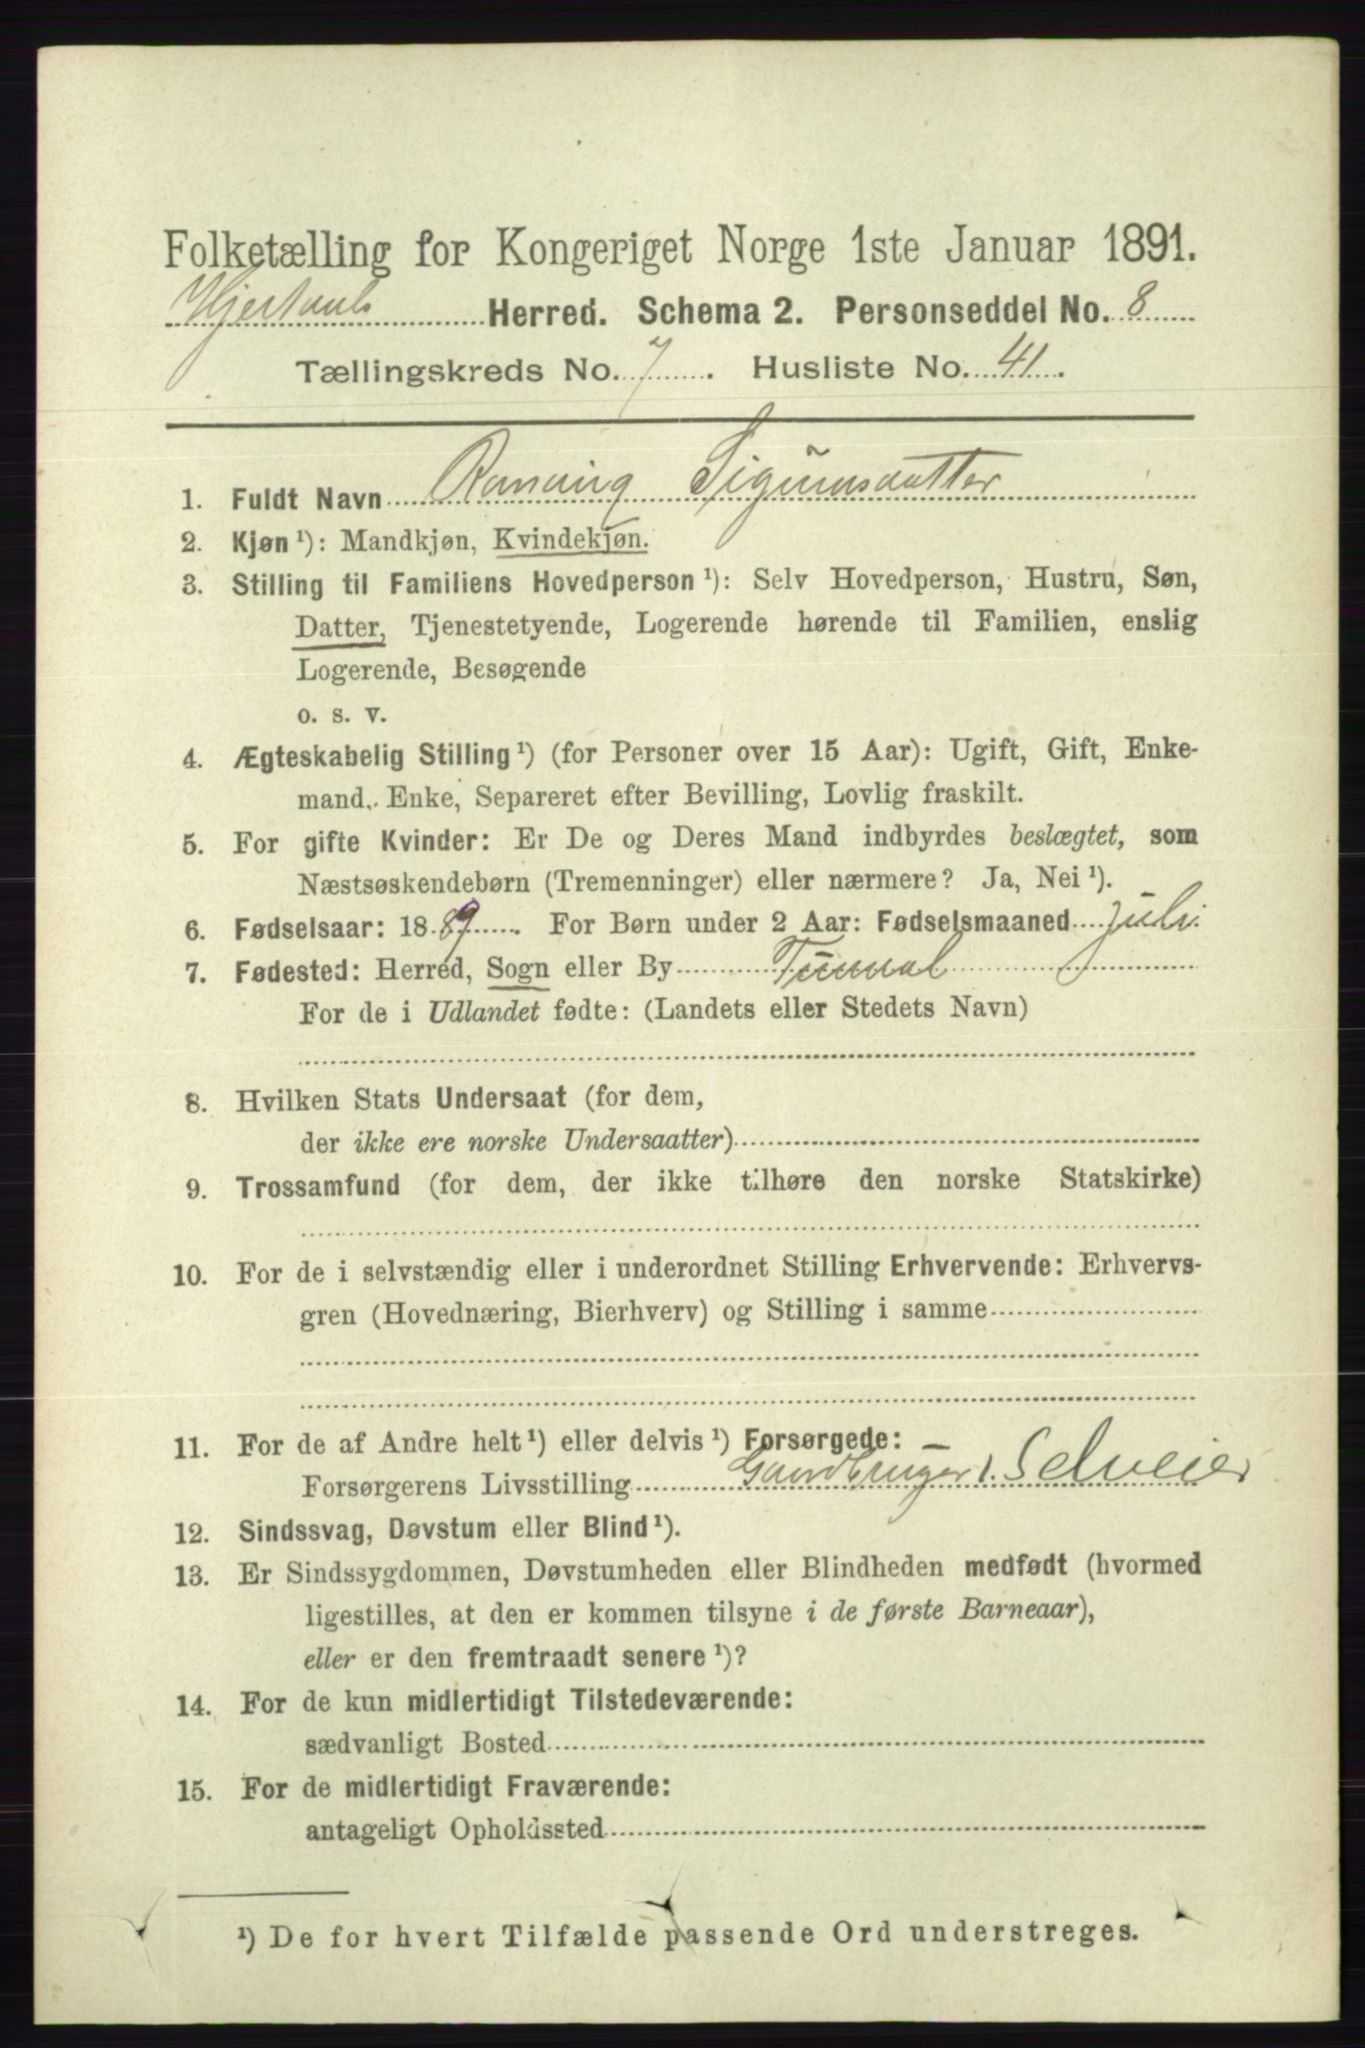 Folketælling for Kongeriget Norge 1ste Januar 1891.
Hjertdals Herred. Schema 2. Personseddel No. 8
Tællingskreds No. 7. Husliste No. 41.
1. Fuldt Navn Sigursdatter
2. Kjøn ¹): Mandkjøn, Kvindekjøn.
3. Stilling til Familiens Hovedperson ¹): Selv Hovedperson, Hustru, Søn,
Datter, Tjenestetyende, Logerende hørende til Familien, enslig
Logerende, Besøgende
o. s. v.
4. Ægteskabelig Stilling ¹) (for Personer over 15 Aar): Ugift, Gift, Enke-
mand, Enke, Separeret efter Bevilling, Lovlig fraskilt.
5. For gifte Kvinder: Er De og Deres Mand indbyrdes beslægtet, som
Næstsøskendebørn (Tremenninger) eller nærmere? Ja, Nei ¹).
6. Fødselsaar: 1889. For Børn under 2 Aar: Fødselsmaaned Juli
7. Fødested: Herred, Sogn eller By Tuddal
For de i Udlandet fødte: (Landets eller Stedets Navn)
8. Hvilken Stats Undersaat (for dem,
der ikke ere norske Undersaatter)
9. Trossamfund (for dem, der ikke tilhøre den norske Statskirke)
10. For de i selvstændig eller i underordnet Stilling Erhvervende: Erhvervs-
gren (Hovednæring, Bierhverv) og Stilling i samme
11. For de af Andre helt ¹) eller delvis ¹) Forsørgede: –
Forsørgerens Livsstilling Gaardbruger, Selveier
12. Sindssvag, Døvstum eller Blind ¹).
13. Er Sindssygdommen, Døvstumheden eller Blindheden medfødt (hvormed
ligestilles, at den er kommen tilsyne i de første Barneaar),
eller er den fremtraadt senere ¹)?
14. For de kun midlertidigt Tilstedeværende:
sædvanligt Bosted
15. For de midlertidigt Fraværende:
antageligt Opholdssted
¹) De for hvert Tilfælde passende Ord understreges.